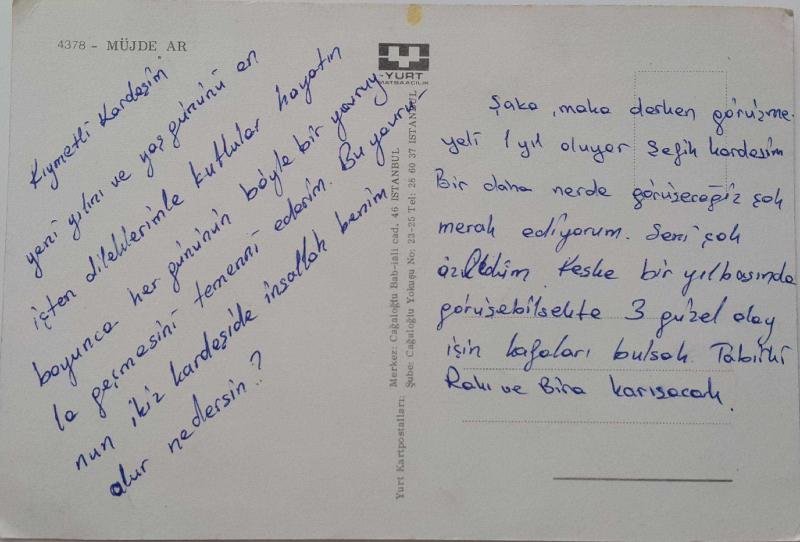 4378 - MÜJDE AR
YURT
MATBAACILIK
Kıymetli kardeşim
yeni yılını ve yaş gününü en
içten dileklerimle kutlular hayatın
boyunca her gününün böyle bir yavruy
la geçmesini temenni ederim. Bu yavru-
nun ikiz kardeşide inşallah benim
olur nedersin?
Yurt Kartpostalları: Merkez: Cağaloğlu Bab-iali cad. 46 ISTANBUL
Şube: Cağaloğlu Yokuşu No: 23-25 Tel: 28 60 37 ISTANBUL
Şaka, maka derken görüşme-
yeli 1 yıl oluyor Şefik kardeşim
Bir daha nerde görüşeceğiz çok
merak ediyorum. Seni çok
özledim. Keşke bir yılbaşında
görüşebilsekte 3 güzel olay
için kafaları bulsak. Tabiiki
Rakı ve Bira karışacak.